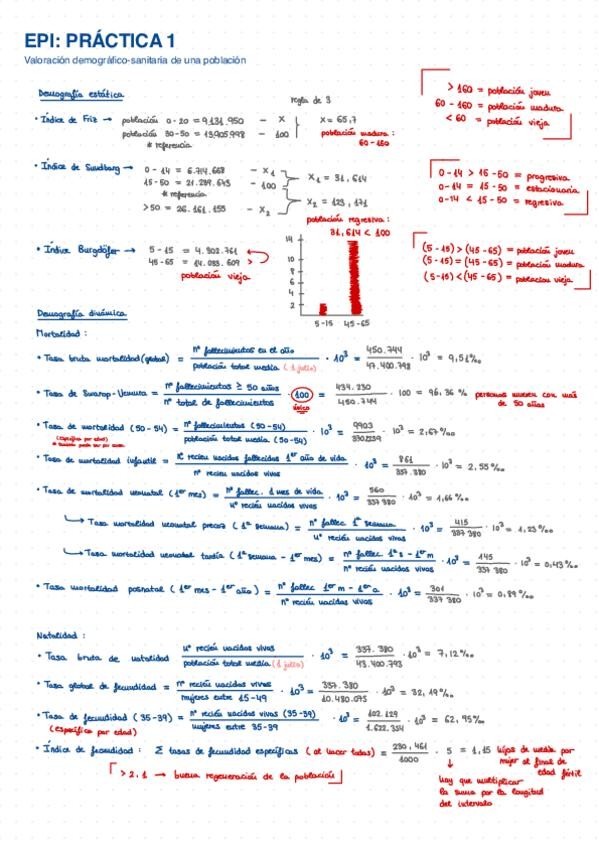 EPI: PRÁCTICA 1
Valoración demográfico-sanitaria de una población
Demografía estática
regla de 3
> 160 = población joven
60 - 160 = población madura
< 60 = población vieja
• Índice de Friz → población 0-20 = 9.131.950 - X
población 30-50 = 13.905.998 - 100
* referencia
X = 65,7
población madura:
60-160
• Índice de Sundbarg → 0-14 = 6.714.668 - X1
15-50 = 21.239.643 - 100
* referencia
>50 = 26.161.155 - X2
X1 = 31,614
X2 = 123,171
población regresiva:
31,614 < 100
0-14 > 15-50 = progresiva
0-14 = 15-50 = estacionaria
0-14 < 15-50 = regresiva
• Índice Burgdöfer → 5-15 = 4.902.761
45-65 = 14.033.609 >
población vieja
14
10
8
6
4
2
5-15 45-65
(5-15) > (45-65) = población joven
(5-15) = (45-65) = población madura
(5-15) < (45-65) = población vieja
Demografía dinámica
Mortalidad:
• Tasa bruta mortalidad (global) = nº fallecimientos en el año / población total media (1 julio) · 10³ = 450.744 / 47.400.798 · 10³ = 9,51‰
• Tasa de Swarop-Uemura = nº fallecimientos ≥ 50 años / nº total de fallecimientos · 100 = 434.230 / 450.744 · 100 = 96,36 % personas mueren con más de 50 años
único
• Tasa de mortalidad (50-54) = nº fallecimientos (50-54) / población total media (50-54) · 10³ = 9903 · 10³ = 2,67‰
(específica por edad)
• Tasa de mortalidad infantil = nº recien nacidos fallecidos 1er año de vida / nº recien nacidos vivos · 10³ = 861 / 337.380 · 10³ = 2,55‰
• Tasa de mortalidad neonatal (1er mes) = nº fallec. 1 mes de vida / nº recién nacidos vivos · 10³ = 560 / 337 380 · 10³ = 1,66‰
↳ Tasa mortalidad neonatal precoz (1ª semana) = nº fallec 1ª semana / nº recién nacidos vivos · 10³ = 415 / 337 380 · 10³ = 1,23‰
↳ Tasa mortalidad neonatal tardía (1ª semana - 1er mes) = nº fallec 1ª s - 1er m / nº recién nacidos vivos · 10³ = 145 / 337 380 · 10³ = 0,43‰
• Tasa mortalidad posnatal (1er mes - 1er año) = nº fallec 1er m - 1er a. / nº recién nacidos vivos · 10³ = 301 / 337 380 · 10³ = 0,89‰
Natalidad:
• Tasa bruta de natalidad nº recién nacidos vivos / población total media (1 julio) · 10³ = 337.380 / 43.400.793 · 10³ = 7,12‰
• Tasa global de fecundidad = nº recién nacidos vivos / mujeres entre 15-49 · 10³ = 337.380 / 10.480.075 · 10³ = 32,19‰
• Tasa de fecundidad (35-39) = nº recién nacidos vivos (35-39) / mujeres entre 35-39 · 10³ = 102.129 / 1.622.354 · 10³ = 62,95‰
(específica por edad)
• Índice de fecundidad: Σ tasas de fecundidad específicas (al hacer todas) = 230,461 / 1000 · 5 = 1,15 hijos de media por mujer al final de edad fértil
> 2,1 → buena regeneración de la población
hay que multiplicar
la suma por la longitud
del intervalo